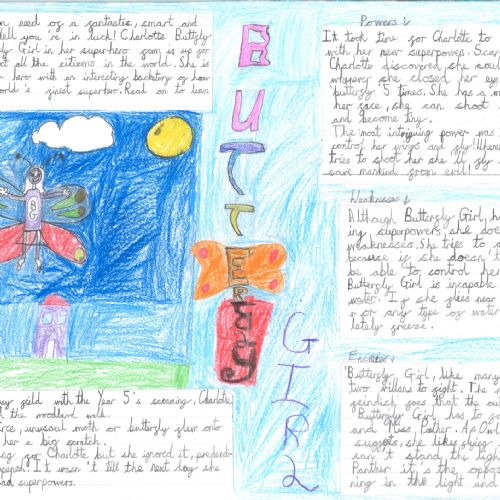 n need of a fantastic, smart and
ell you're in luck! Charlotte Buttfly
ly Girl in her superhero form is up for
t all the citizens in the world. She is
hero with an interesting backstory of how
orld's finest superhero. Read on to learn
BG
ey field with the Year 5's scening, Charlotte
the woodland walk.
rce, unusual moth or butterfly flew onto
her a big scratch.
ng for Charlotte but she ignored it,
appen! It wasn't till the next day she
ad superpowers.
BUTTERFLY
GIRL
Powers
It took time for Charlotte to
with her new superpowers. Sca
Charlotte discovered, she cou
she closed her eye
butterfly 5 times. She has a
her face, she can shoot
and become tiny.
The most intriguing power was
control her wings and fly! When
tries to shoot her she'll fly
save mankind from evil!
Weaknesses
Although Butterfly Girl, ha
ing superpowers she doe
weaknesses. She tries to s
because if she doesn't
be able to control her
Butterfly Girl is incapable
water. If she flies near
or any type of water
letely freeze.
Enemies
Butterfly Girl, like many
two villans to fight. The
feindish foes that the
Butterfly Girl has to
and Miss. Panther. As Owl
suggests, she likes flying
can't stand the light
Panther it's the opposi
ning in the light and